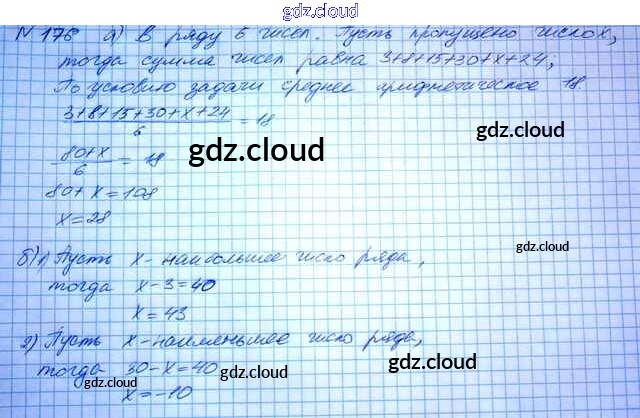 gdz.cloud
№ 176 а) В ряду 6 чисел. Пусть пропущено число x,
тогда сумма чисел равна 3+8+15+30+x+24;
По условию задачи среднее арифметическое 18.
3+8+15+30+x+24
6
= 18
80+x
6
= 18
gdz.cloud
gdz.cloud
80+x=108
x=28
б) 1) Пусть x - наибольшее число ряда,
gdz.cloud
тогда x-3=40
x=43
2) Пусть x - наименьшее число ряда,
тогда 30-x=40
gdz.cloud
gdz.cloud
gdz.cloud
x=-10